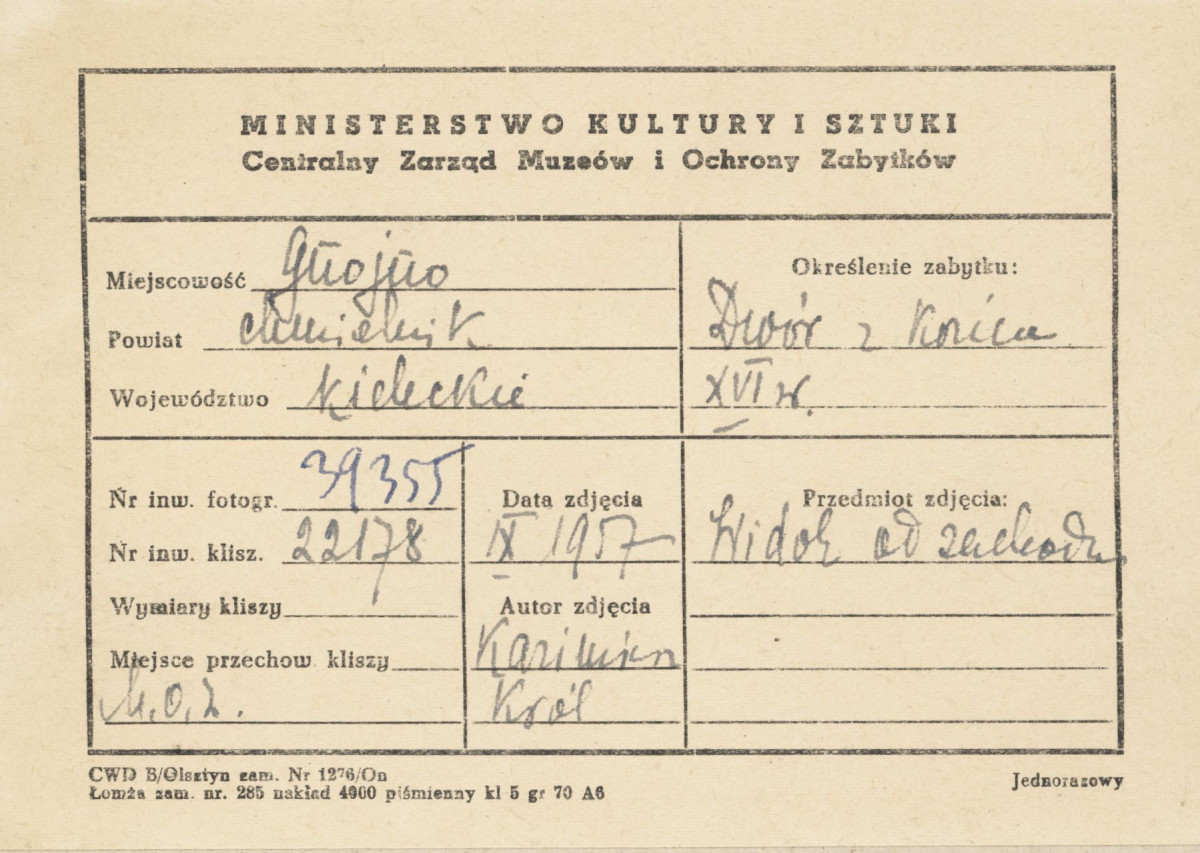 MINISTERSTWO KULTURY I SZTUKI
Centralny Zarząd Muzeów i Ochrony Zabytków
Miejscowość Gnojno
Powiat Chmielnik
Województwo kieleckie
Określenie zabytku:
Dwór z końca
XVI w.
Nr inw. fotogr. 39355
Nr inw. klisz. 22178
Wymiary kliszy
Miejsce przechow kliszy
M.O.Z.
Data zdjęcia
IX 1957
Autor zdjęcia
Kazimierz
Król
Przedmiot zdjęcia:
Widok od zachodu
CWD B/Olsztyn zam. Nr 1276/On
Łomża zam. nr. 285 nakład 4000 piśmienny kl 5 gr 70 A6
Jednorazowy